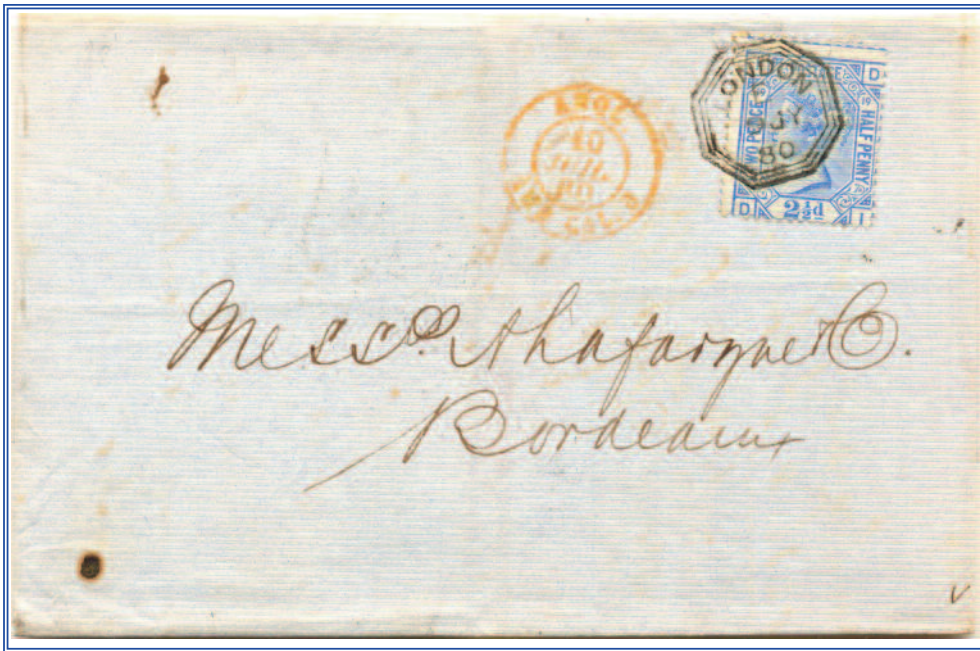 LONDON
JY
80
TWO PENCE HALF PENNY
D
D 2½d I
ANGL.
10
JUIL.
Mess.rs A Lafargue & Co.
Bordeaux